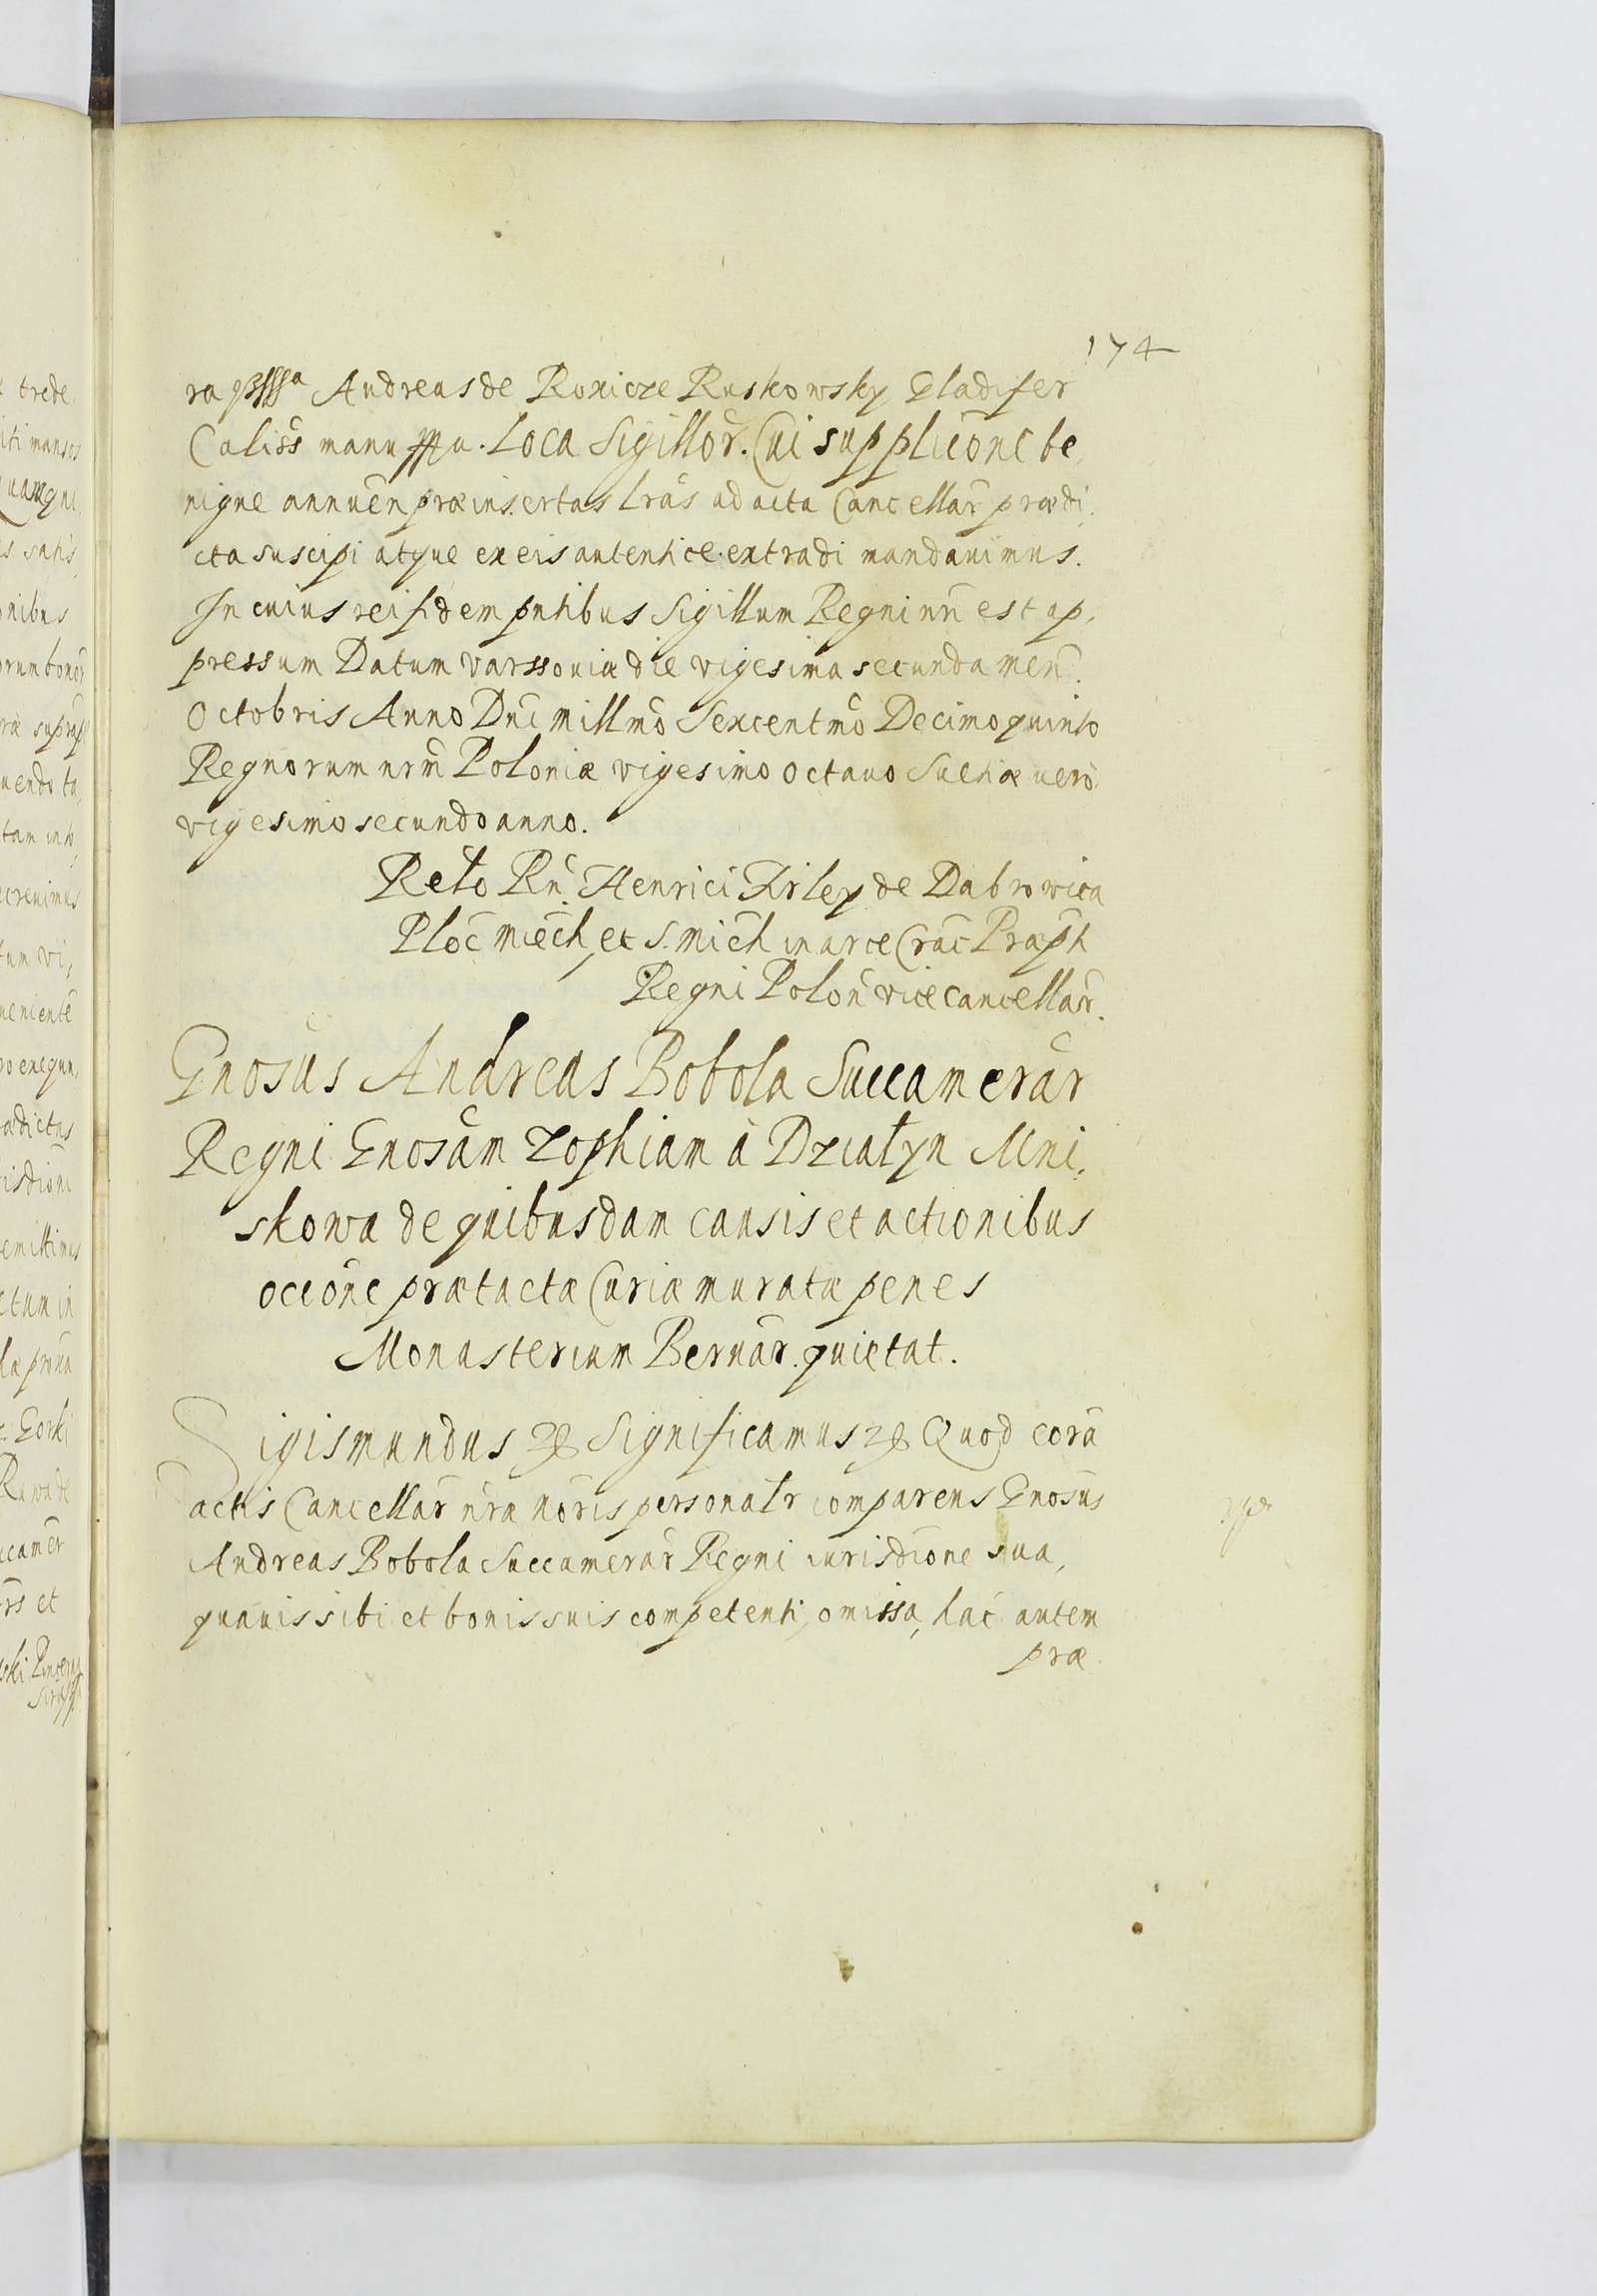 174
ra Andreas de Roxicze Ruskowsky Gladifer
Caliss̃ manu ppa. Loca Sigillor̃. Cui supplicõne be,
nigne annuẽn præinsertas lrãs ad acta Cancellar̃ prædi,
cta suscipi atque ex eis autentice extradi mandauimus.
In cuius rei fidem pñtibus Sigillum Regni nrũ est ap,
pressum Datum Varssouiæ die vigesima secunda meñ.
Octobris Anno Dñi millmõ Sexcentmõ Decimo quinto
Regnorum nrm̃ Poloniæ vigesimo octauo Suetiæ uerò
vigesimo secundo anno.
Relõ Rñ. Henrici Firley de Dabrowica
Plõc miẽch, et S. micħ in arce Crãc Præpti
Regni Poloñ vicecancellar̃.
Gnosũs Andreas Bobola Succamerãr
Regni Gnosãm Zophiam à Działyn Mni,
skowa de quibusdam causis et actionibus
occõne prætactæ Curiæ muratæ penes
Monasterium Bernãr. quietat.
Sigismundus etc. Significamus etc. Quod corã
actis Cancellar̃ nrã nõris personalr comparens Gnosũs
Andreas Bobola Succamerãr Regni iurisdiõne sua,
quauis sibi et bonis suis competenti, omissa, hac autem
præ
trede
mansos
satis
onibus
orum bonor̃
uendo ta,
tam in
ecreuimus
tum vi,
ueniente
exequn,
ædictus
emittimus
ctum in
et